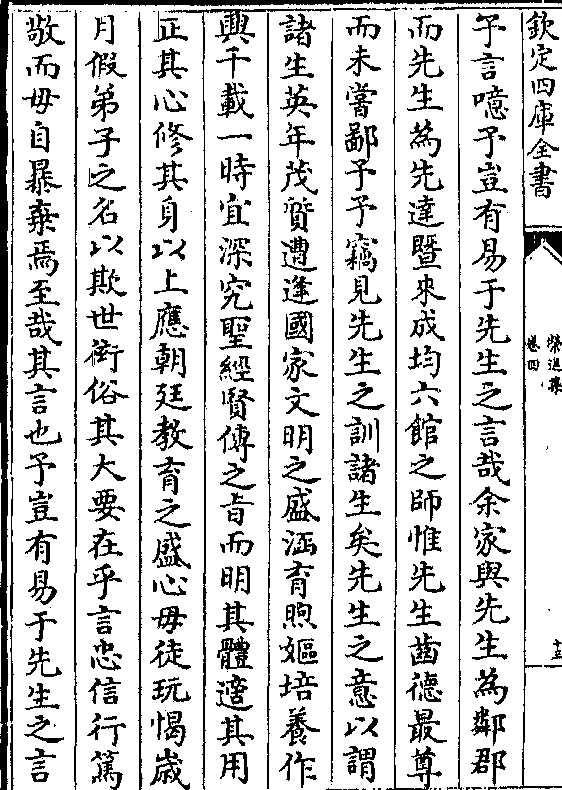 欽定四庫全書
榮進集
卷四
十五
予言噫予豈有易于先生之言哉余家與先生為鄰郡
而先生為先達暨來成均六館之師惟先生齒德最尊
而未嘗鄙予予竊見先生之訓諸生矣先生之意以謂
諸生英年茂質遭逢國家文明之盛涵育煦嫗培養作
興千載一時宜深究聖經賢傳之旨而明其體適其用
正其心修其身以上應朝廷教育之盛心毋徒玩愒歲
月假弟子之名以欺世衒俗其大要在乎言忠信行篤
敬而毋自暴棄焉至哉其言也予豈有易于先生之言